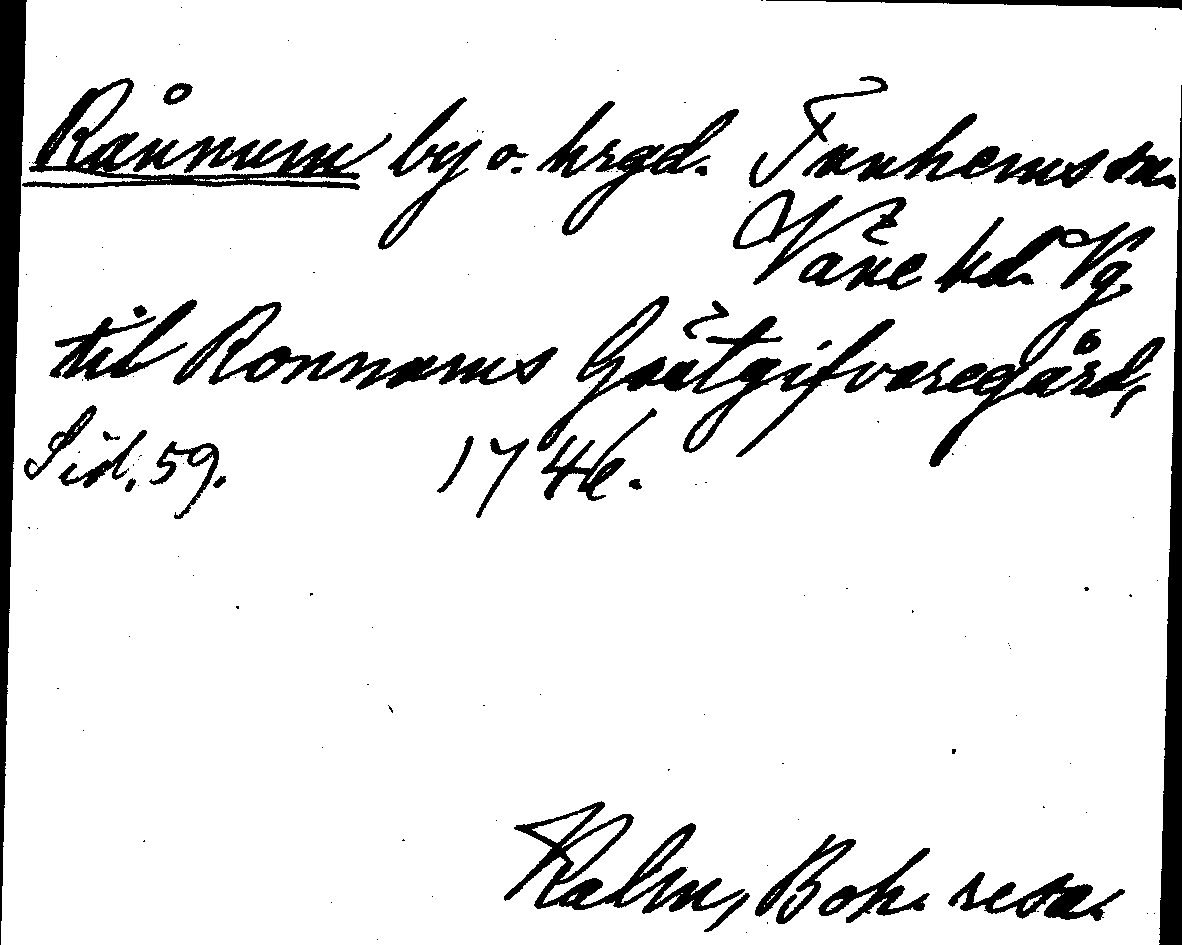 Rånnum by o. hrgd. Fnnhems sn.
Väne hd. Vg
til Ronnams Gästgifvaregård,
Sid. 59. 1746.
Kalm, Boh. resa.